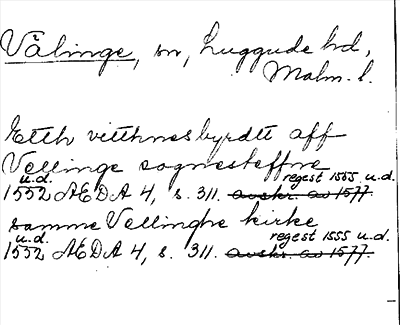 Välinge, sn, Luggude hd,
Malm. l.
Etth vitthnesbyrdtt aff
Vellinge sognesteffne
u.d. regest 1555 u.d.
1552 ÆDA 4, s. 311. avskr. av 1577.
samme Vellinghe kirke
u.d. regest 1555 u.d.
1552 ÆDA 4, s. 311. avskr. av 1577.